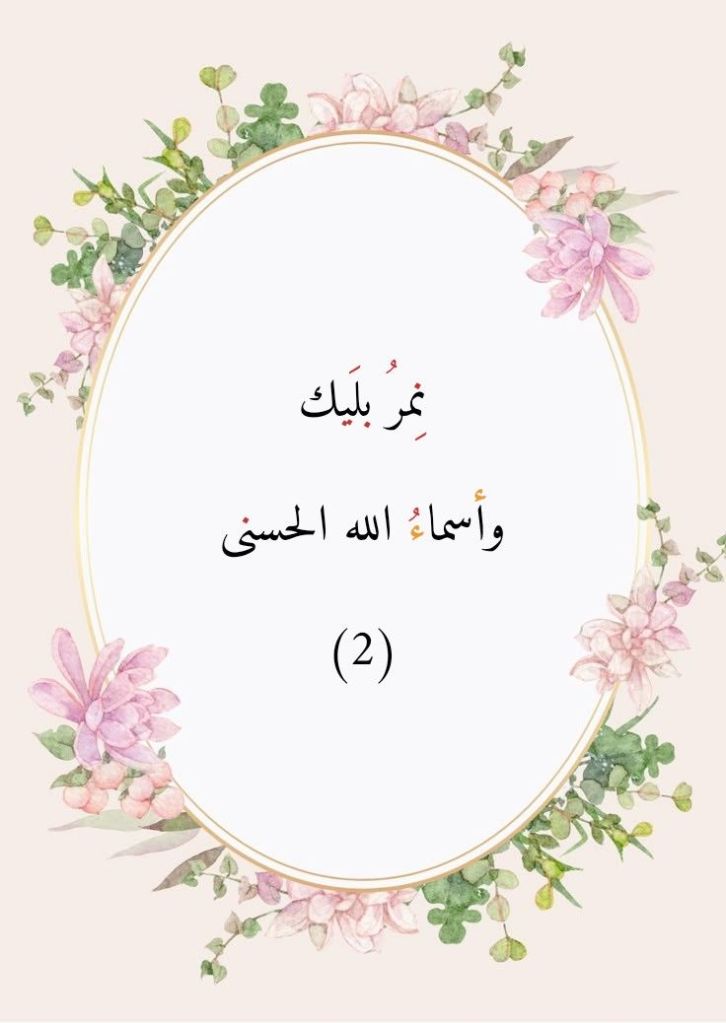 نِمِرُ بلَيك
وأسماءُ الله الحسنى
(2)